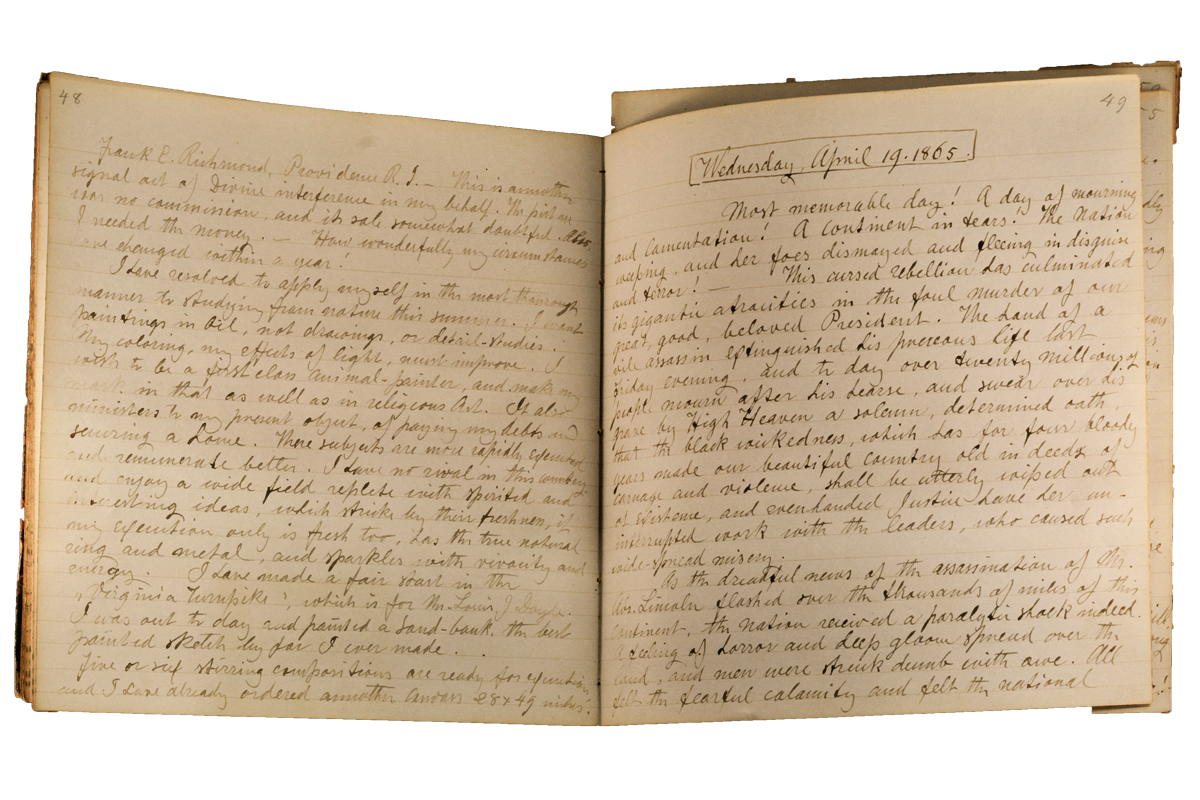 48
Frank E. Richmond, Providence R. I. — This is another
signal act of Divine interference in my behalf. The picture
was no commission, and its sale somewhat doubtful. Also
I needed the money. — How wonderfully my circumstances
have changed within a year!
I have resolved to apply myself in the most thorough
manner to studying from nature this summer. I want
paintings in oil, not drawings, or detail-studies.
My coloring, my effects of light, must improve. I
wish to be a first class animal-painter, and make my
mark in that as well as in religious Art. It also
ministers to my present object, of paying my debts and
securing a home. These subjects are more rapidly executed
and remunerate better. I have no rival in this country
and enjoy a wide field replete with spirited and
interesting ideas, which strike by their freshness, if
my execution only is fresh too, has the true natural
ring and metal, and sparkles with vivacity and
energy. I have made a fair start in the
"Virginia Turnpike", which is for Mr. Louis J. Doyle.
I was out to day and painted a sand-bank, the best
painted sketch by far I ever made.
Five or six stirring compositions are ready for execution,
and I have already ordered another canvas 28 x 49 inches.
49
Wednesday, April 19. 1865.
Most memorable day! A day of mourning
and lamentation! A continent in tears! The Nation
weeping, and her foes dismayed and fleeing in disguise
and terror! — This cursed rebellion has culminated
its gigantic atrocities in the foul murder of our
great, good, beloved President. The hand of a
vile assassin extinguished his precious life last
Friday evening, and to day over twenty millions of
people mourn after his hearse, and swear over his
grave by High Heaven a solemn, determined oath,
that the black wickedness, which has for four bloody
years made our beautiful country old in deeds of
carnage and violence, shall be utterly wiped out
of existence, and evenhanded Justice have her un-
interrupted work with the leaders, who caused such
wide-spread misery.
As the dreadful news of the assassination of Mr.
Abr. Lincoln flashed over the thousands of miles of this
continent, the nation received a paralytic shock indeed.
A feeling of horror and deep gloom spread over the
land, and men were struck dumb with awe. All
felt the fearful calamity and felt the national